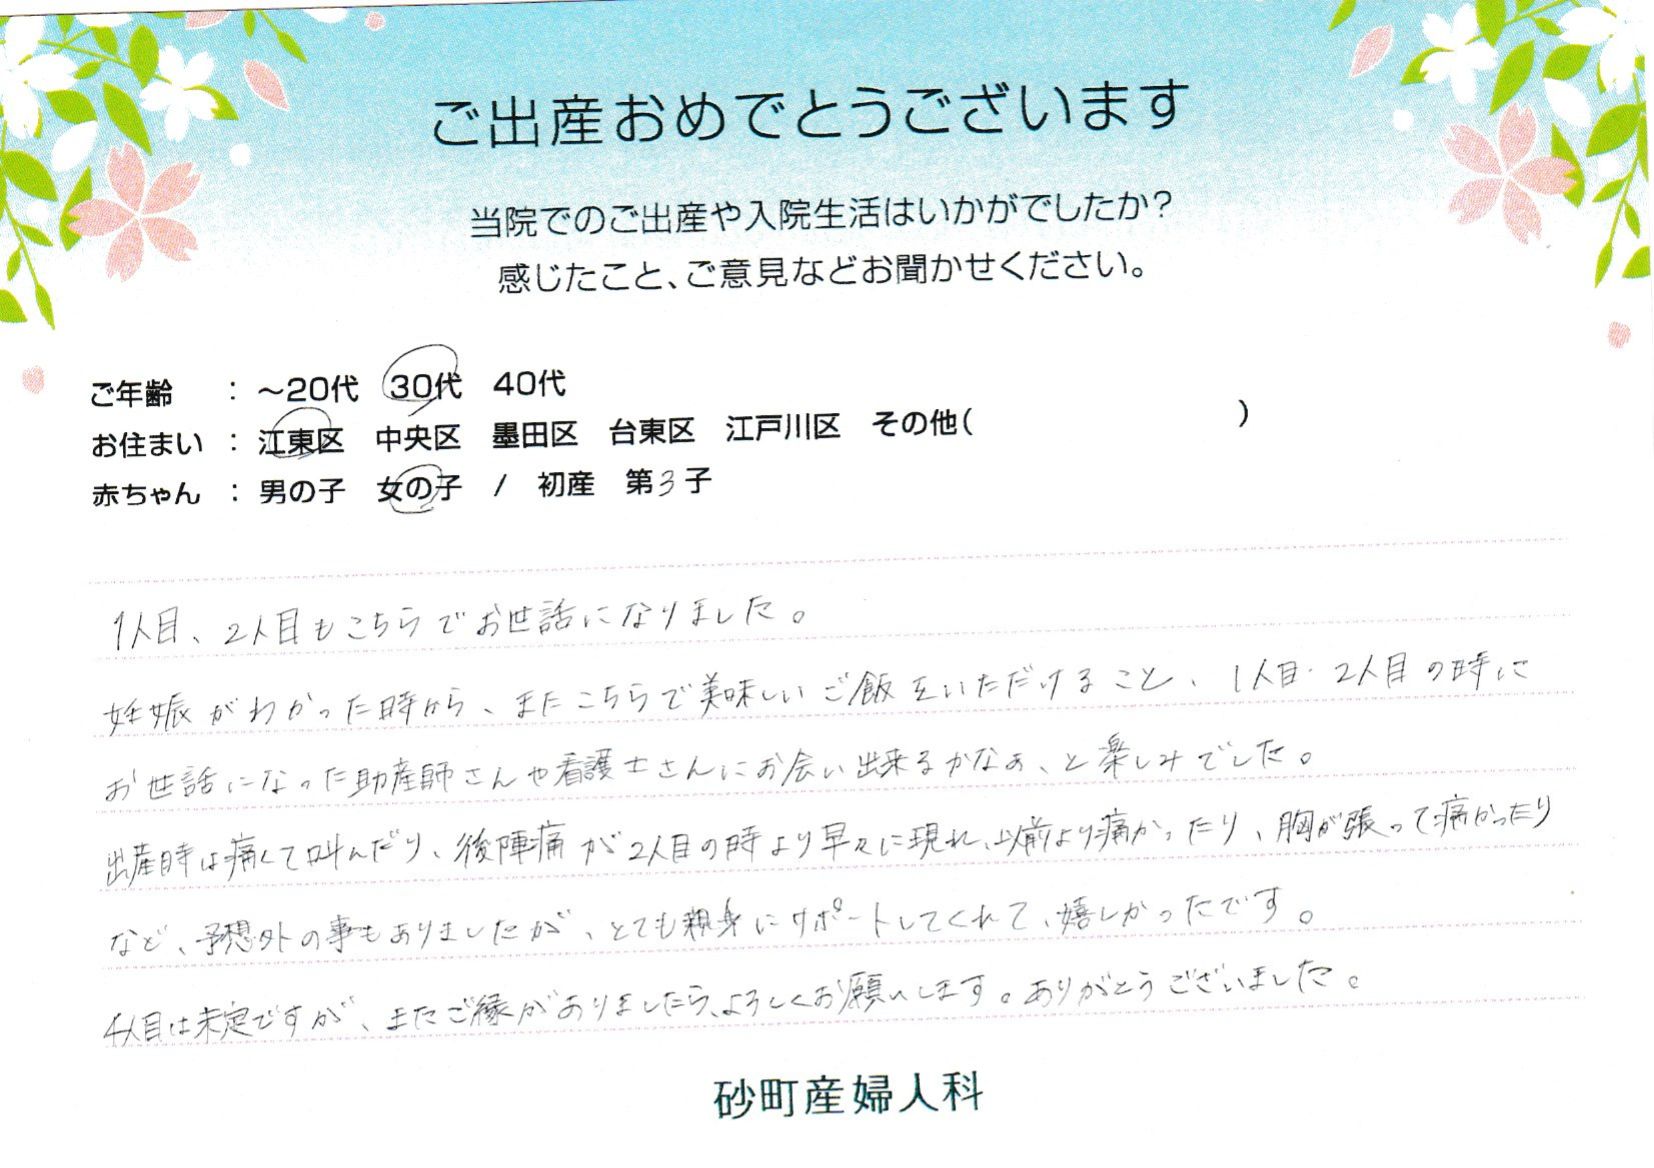 ご出産おめでとうございます
当院でのご出産や入院生活はいかがでしたか?
感じたこと、ご意見などお聞かせください。
ご年齢 : ～20代 30代 40代
お住まい : 江東区 中央区 墨田区 台東区 江戸川区 その他( )
赤ちゃん : 男の子 女の子 / 初産 第3子
1人目、2人目もこちらでお世話になりました。
妊娠がわかった時から、またこちらで美味しいご飯をいただけること、1人目・2人目の時に
お世話になった助産師さんや看護士さんにお会い出来るかなぁ、と楽しみでした。
出産時は痛くて叫んだり、後陣痛が2人目の時より早々に現れ、以前より痛かったり、胸が張って痛かったり
など、予想外の事もありましたが、とても親身にサポートしてくれて、嬉しかったです。
4人目は未定ですが、またご縁がありましたら、よろしくお願いします。ありがとうございました。
砂町産婦人科